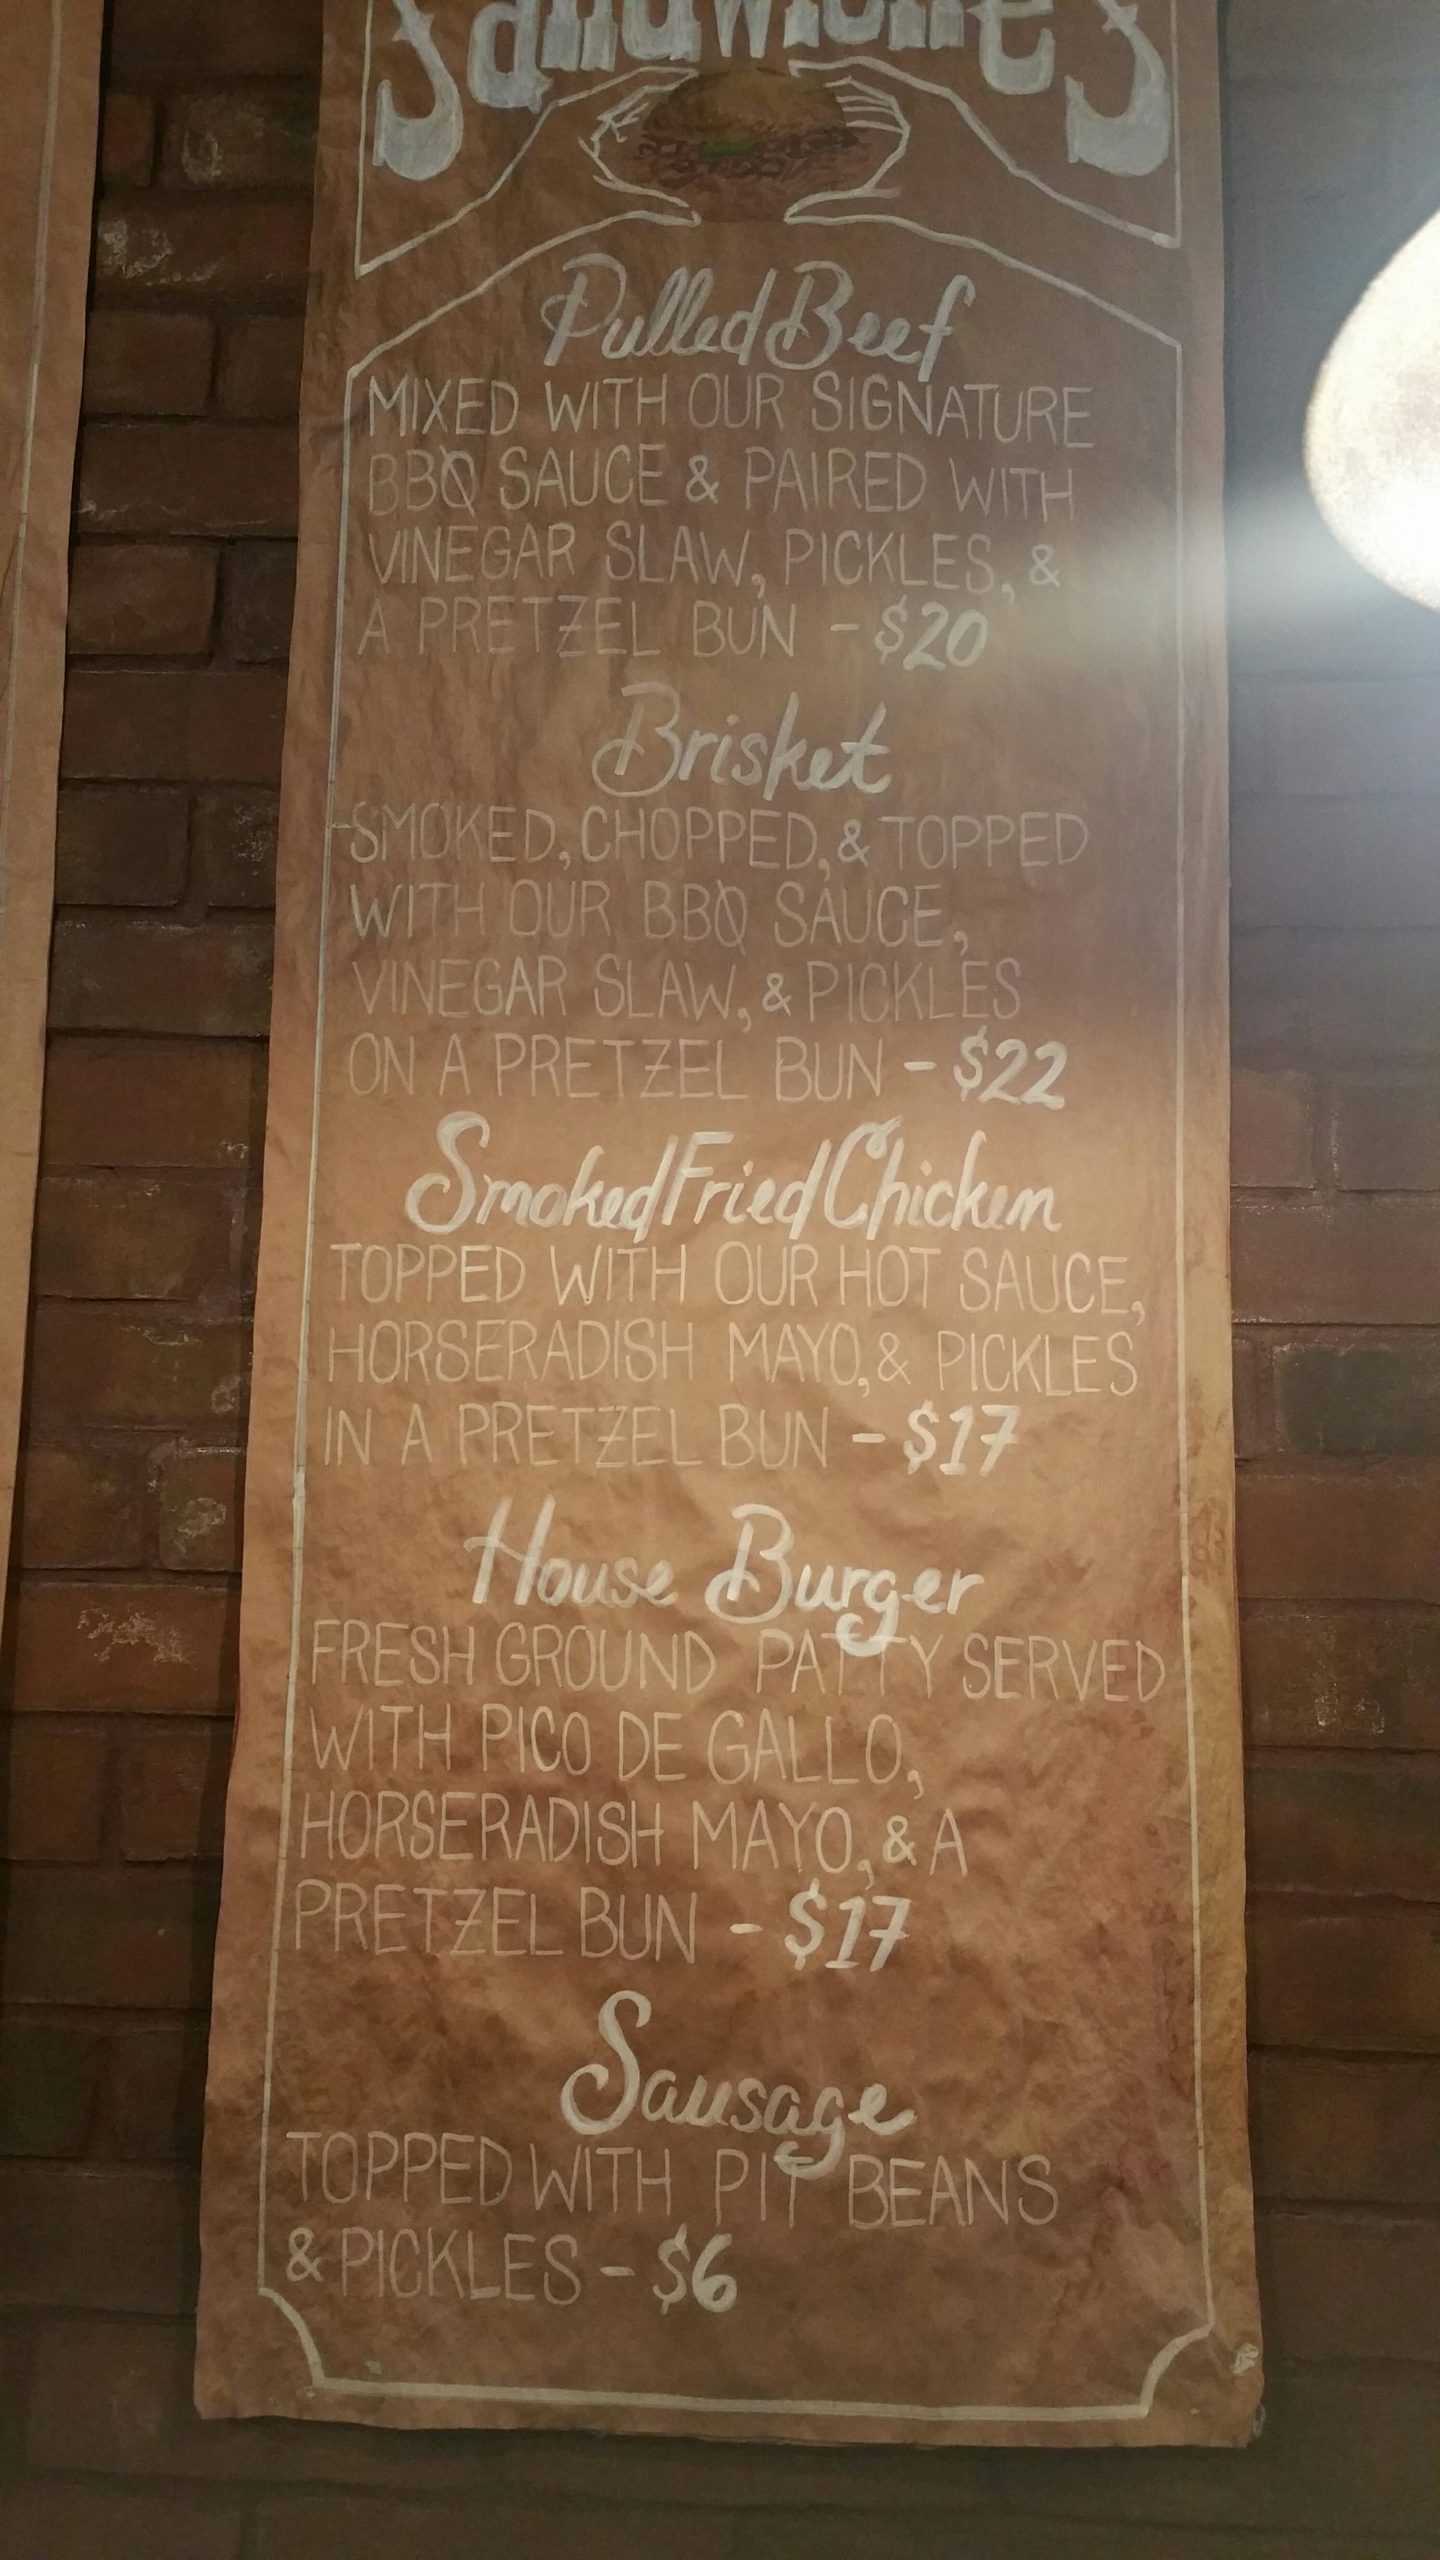 Sandwiches
Pulled Beef
MIXED WITH OUR SIGNATURE
BBQ SAUCE & PAIRED WITH
VINEGAR SLAW, PICKLES, &
A PRETZEL BUN - $20
Brisket
SMOKED, CHOPPED, & TOPPED
WITH OUR BBQ SAUCE,
VINEGAR SLAW, & PICKLES
ON A PRETZEL BUN - $22
Smoked Fried Chicken
TOPPED WITH OUR HOT SAUCE,
HORSERADISH MAYO, & PICKLES
IN A PRETZEL BUN - $17
House Burger
FRESH GROUND PATTY SERVED
WITH PICO DE GALLO,
HORSERADISH MAYO, & A
PRETZEL BUN - $17
Sausage
TOPPED WITH PIT BEANS
& PICKLES - $6